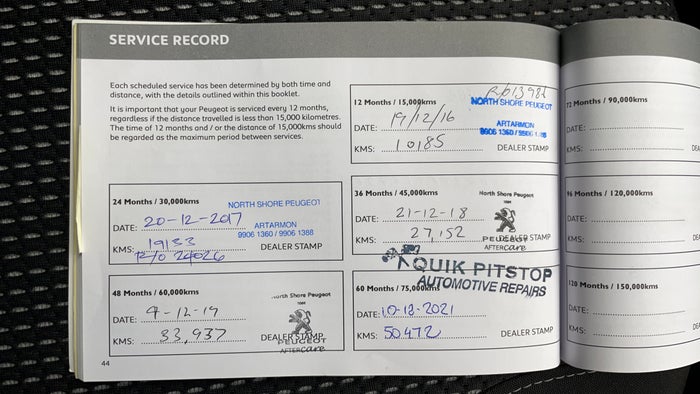 SERVICE RECORD
Each scheduled service has been determined by both time and
distance, with the details outlined within this booklet.
It is important that your Peugeot is serviced every 12 months,
regardless if the distance travelled is less than 15,000 kilometres.
The time of 12 months and / or the distance of 15,000kms should
be regarded as the maximum period between services.
12 Months / 15,000kms
NORTH SHORE PEUGEOT
ARTARMON
9906 1360 / 9906 1388
DATE: 19/12/16
KMS: 10185
DEALER STAMP
24 Months / 30,000kms
NORTH SHORE PEUGEOT
ARTARMON
9906 1360 / 9906 1388
DATE: 20-12-2017
KMS: 19133
R/O 24026
DEALER STAMP
36 Months / 45,000kms
North Shore Peugeot
DATE: 21-12-18
KMS: 27,152
DEALER STAMP
PEUGEOT
AFTERcare
48 Months / 60,000kms
North Shore Peugeot
DATE: 9-12-19
KMS: 33,937
DEALER STAMP
PEUGEOT
AFTERcare
QUIK PITSTOP
AUTOMOTIVE REPAIRS
60 Months / 75,000kms
DATE: 10-12-2021
KMS: 50472
DEALER STAMP
44
72 Months / 90,000kms
DATE:
KMS:
96 Months / 120,000kms
DATE:
KMS:
120 Months / 150,000kms
DATE:
KMS: